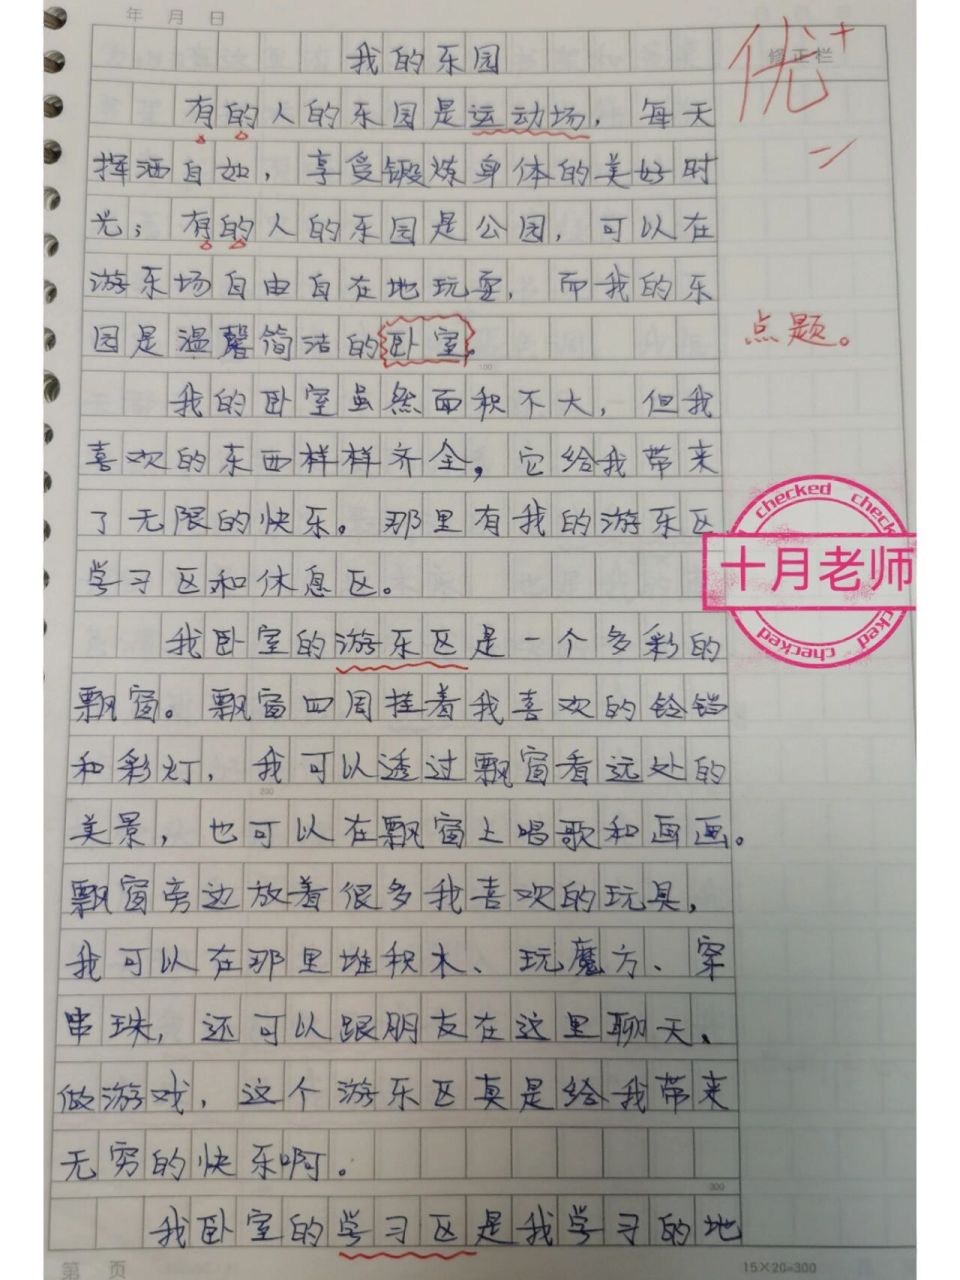 年 月 日
修正栏
优+
我的乐园
有的人的乐园是运动场，每天
挥洒自如，享受锻炼身体的美好时
光；有的人的乐园是公园，可以在
游乐场自由自在地玩耍，而我的乐
园是温馨简洁的卧室。
点题。
100
我的卧室虽然面积不大，但我
喜欢的东西样样齐全，它给我带来
了无限的快乐。那里有我的游乐区
学习区和休息区。
checked checked
十月老师
checked checked
我卧室的游乐区是一个多彩的
飘窗。飘窗四周挂着我喜欢的铃铛
和彩灯，我可以透过飘窗看远处的
200
美景，也可以在飘窗上唱歌和画画。
飘窗旁边放着很多我喜欢的玩具，
我可以在那里堆积木、玩魔方、穿
串珠，还可以跟朋友在这里聊天、
做游戏，这个游乐区真是给我带来
无穷的快乐啊。
300
我卧室的学习区是我学习的地
第 页
15×20=300